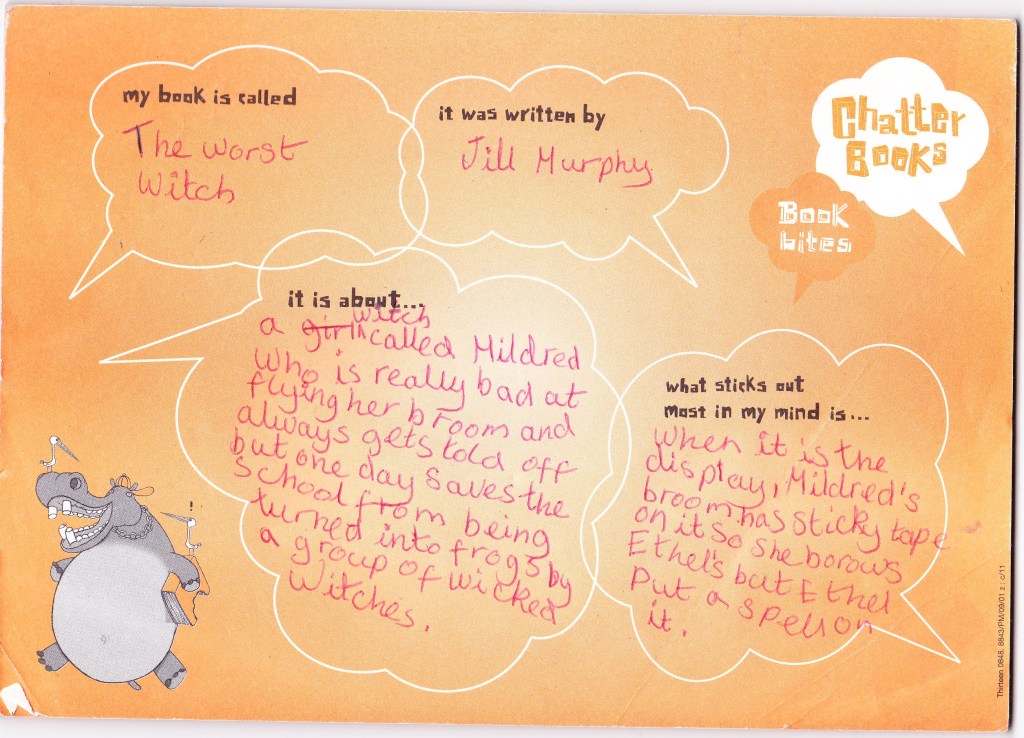 my book is called
The worst
Witch
it was written by
Jill Murphy
Chatter
Books
Book
bites
it is about...
a girl witch called Mildred
who is really bad at
flying her broom and
always gets told off
but one day saves the
school from being
turned into frogs by
a group of wicked
Witches.
what sticks out
most in my mind is...
When it is the
display, Mildred's
broom has sticky tape
on it so she borows
Ethel's but Ethel
Put a spell on
it.
!
Thirteen 0848. 8843/PM/09/01 z : c/11